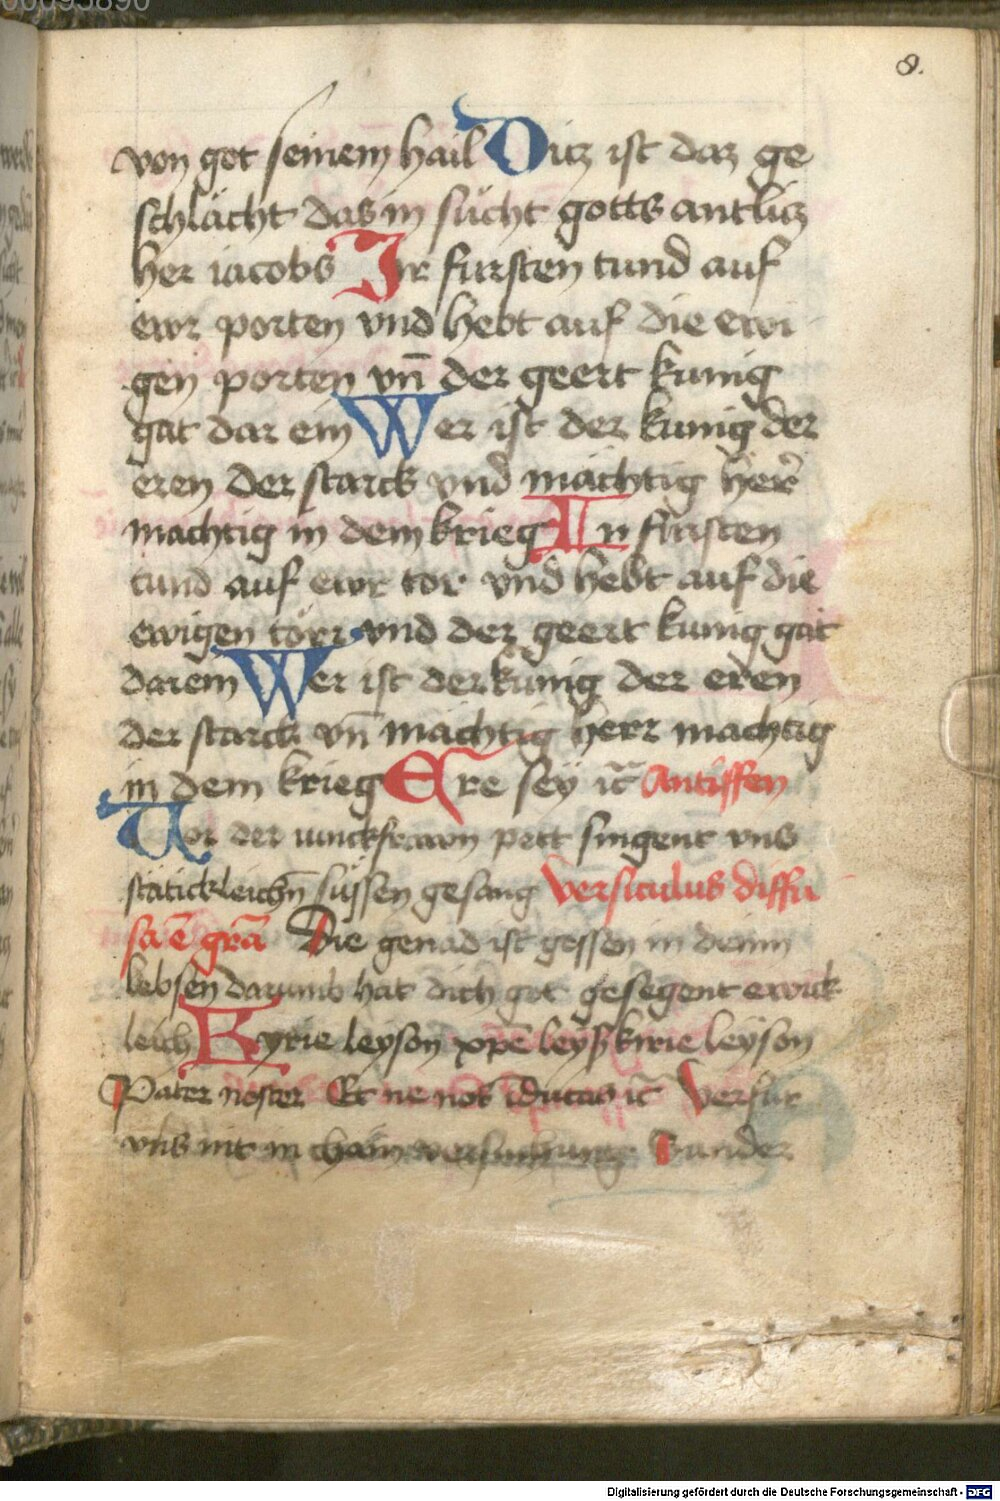 8.
von got seinem hail Ditz ist daz ge
schlächt das in sücht gotts antlitz
her iacobs Ir fursten tund auf
ewr porten vnd hebt auf die ewi
gen porten vn̄ der geert kunig
gat dar ein Wer ist der kunig der
eren der starck vnd mächtig herr
machtig in dem krieg Ir fursten
tund auf ewr tor vnd hebt auf die
ewigen törr vnd der geert kunig gat
darein Wer ist der kunig der eren
der starck vn̄ mächtig herr machtig
in dem krieg Ere sey ꝛc̄ Antiffen
Vor der iunckfrawn pett singent vns
stätickleichn̄ süssen gesang Versiculus diffu
sa ē grā Die genad ist gossen in deinn
lebsen darumb hat dich got gesegent ewick
leich Kyrie leyson xpe̅ leyß kirie leyson
Pater noster Et ne nos īducas ꝛc̄ Verfür
vns nit in chain versuchung Sunder
Digitalisierung gefördert durch die Deutsche Forschungsgemeinschaft - DFG